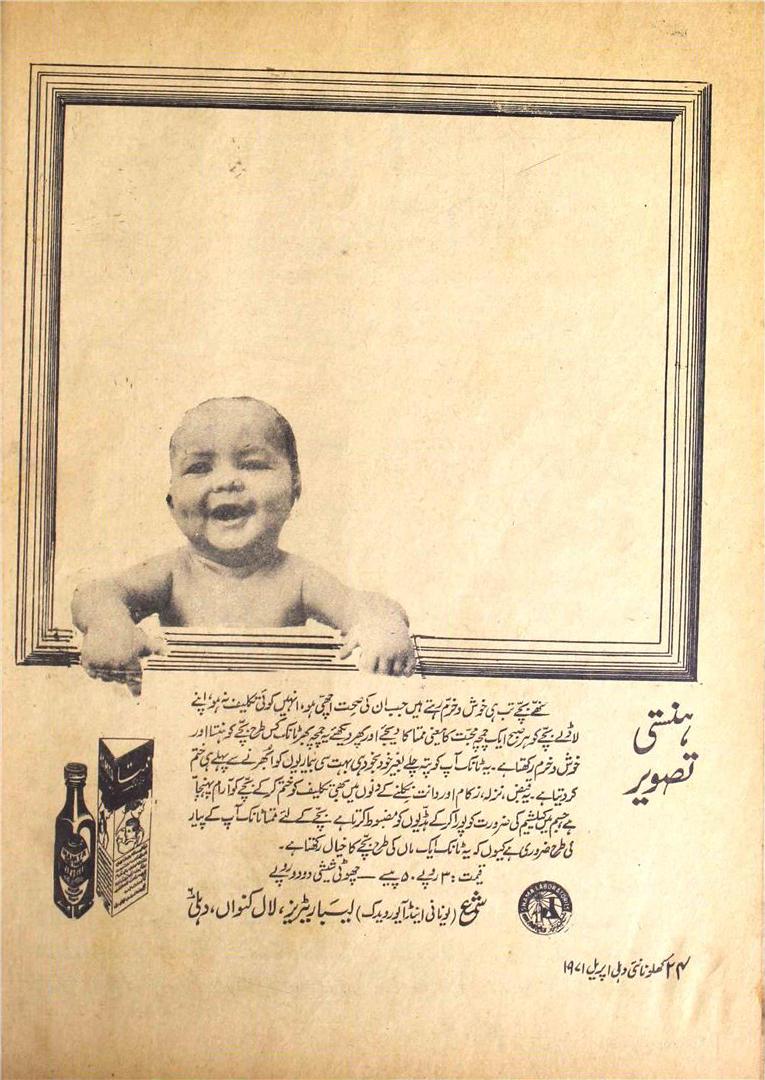 ہنستی
تصویر
ننھّے بچّے تب ہی خوش و خرّم رہتے ہیں جب ان کی صحت اچھی ہو، انہیں کوئی تکلیف نہ ہو، اپنے
لاڈلے بچّے کو ہر صبح ایک چمچہ محبّت کا یعنی ممتا کا دیجئے اور پھر دیکھئے یہ چمچہ بھر ٹانک کس طرح بچّے کو ہنستا اور
خوش و خرم رکھتا ہے۔ یہ ٹانک آپ کو پتہ چلے بغیر خود بخود ہی بہت سی بیماریوں کو اُبھرنے سے پہلے ہی ختم
کر دیتا ہے۔ قبض، نزلہ، زکام اور دانت نکلنے کے دنوں میں بھی تکلیف کو ختم کر کے بچّے کو آرام پہنچاتا
ہے جسم میں کیلشیم کی ضرورت کو پورا کر کے ہڈیوں کو مضبوط کرتا ہے۔ بچّے کے لئے ممتا ٹانک آپ کے پیار
کی طرح ضروری ہے کیوں کہ یہ ٹانک ایک ماں کی طرح بچّے کا خیال رکھتا ہے۔
قیمت: ۳ روپے ۵۰ پیسے — چھوٹی شیشی دو روپے
شمع (یونانی اینڈ آیورویدک) لیبارٹریز، لال کنواں، دہلی ۶
SHAMA LABORATORIES
ممتا
۲۴ کھلونا نئی دہلی اپریل ۱۹۷۱